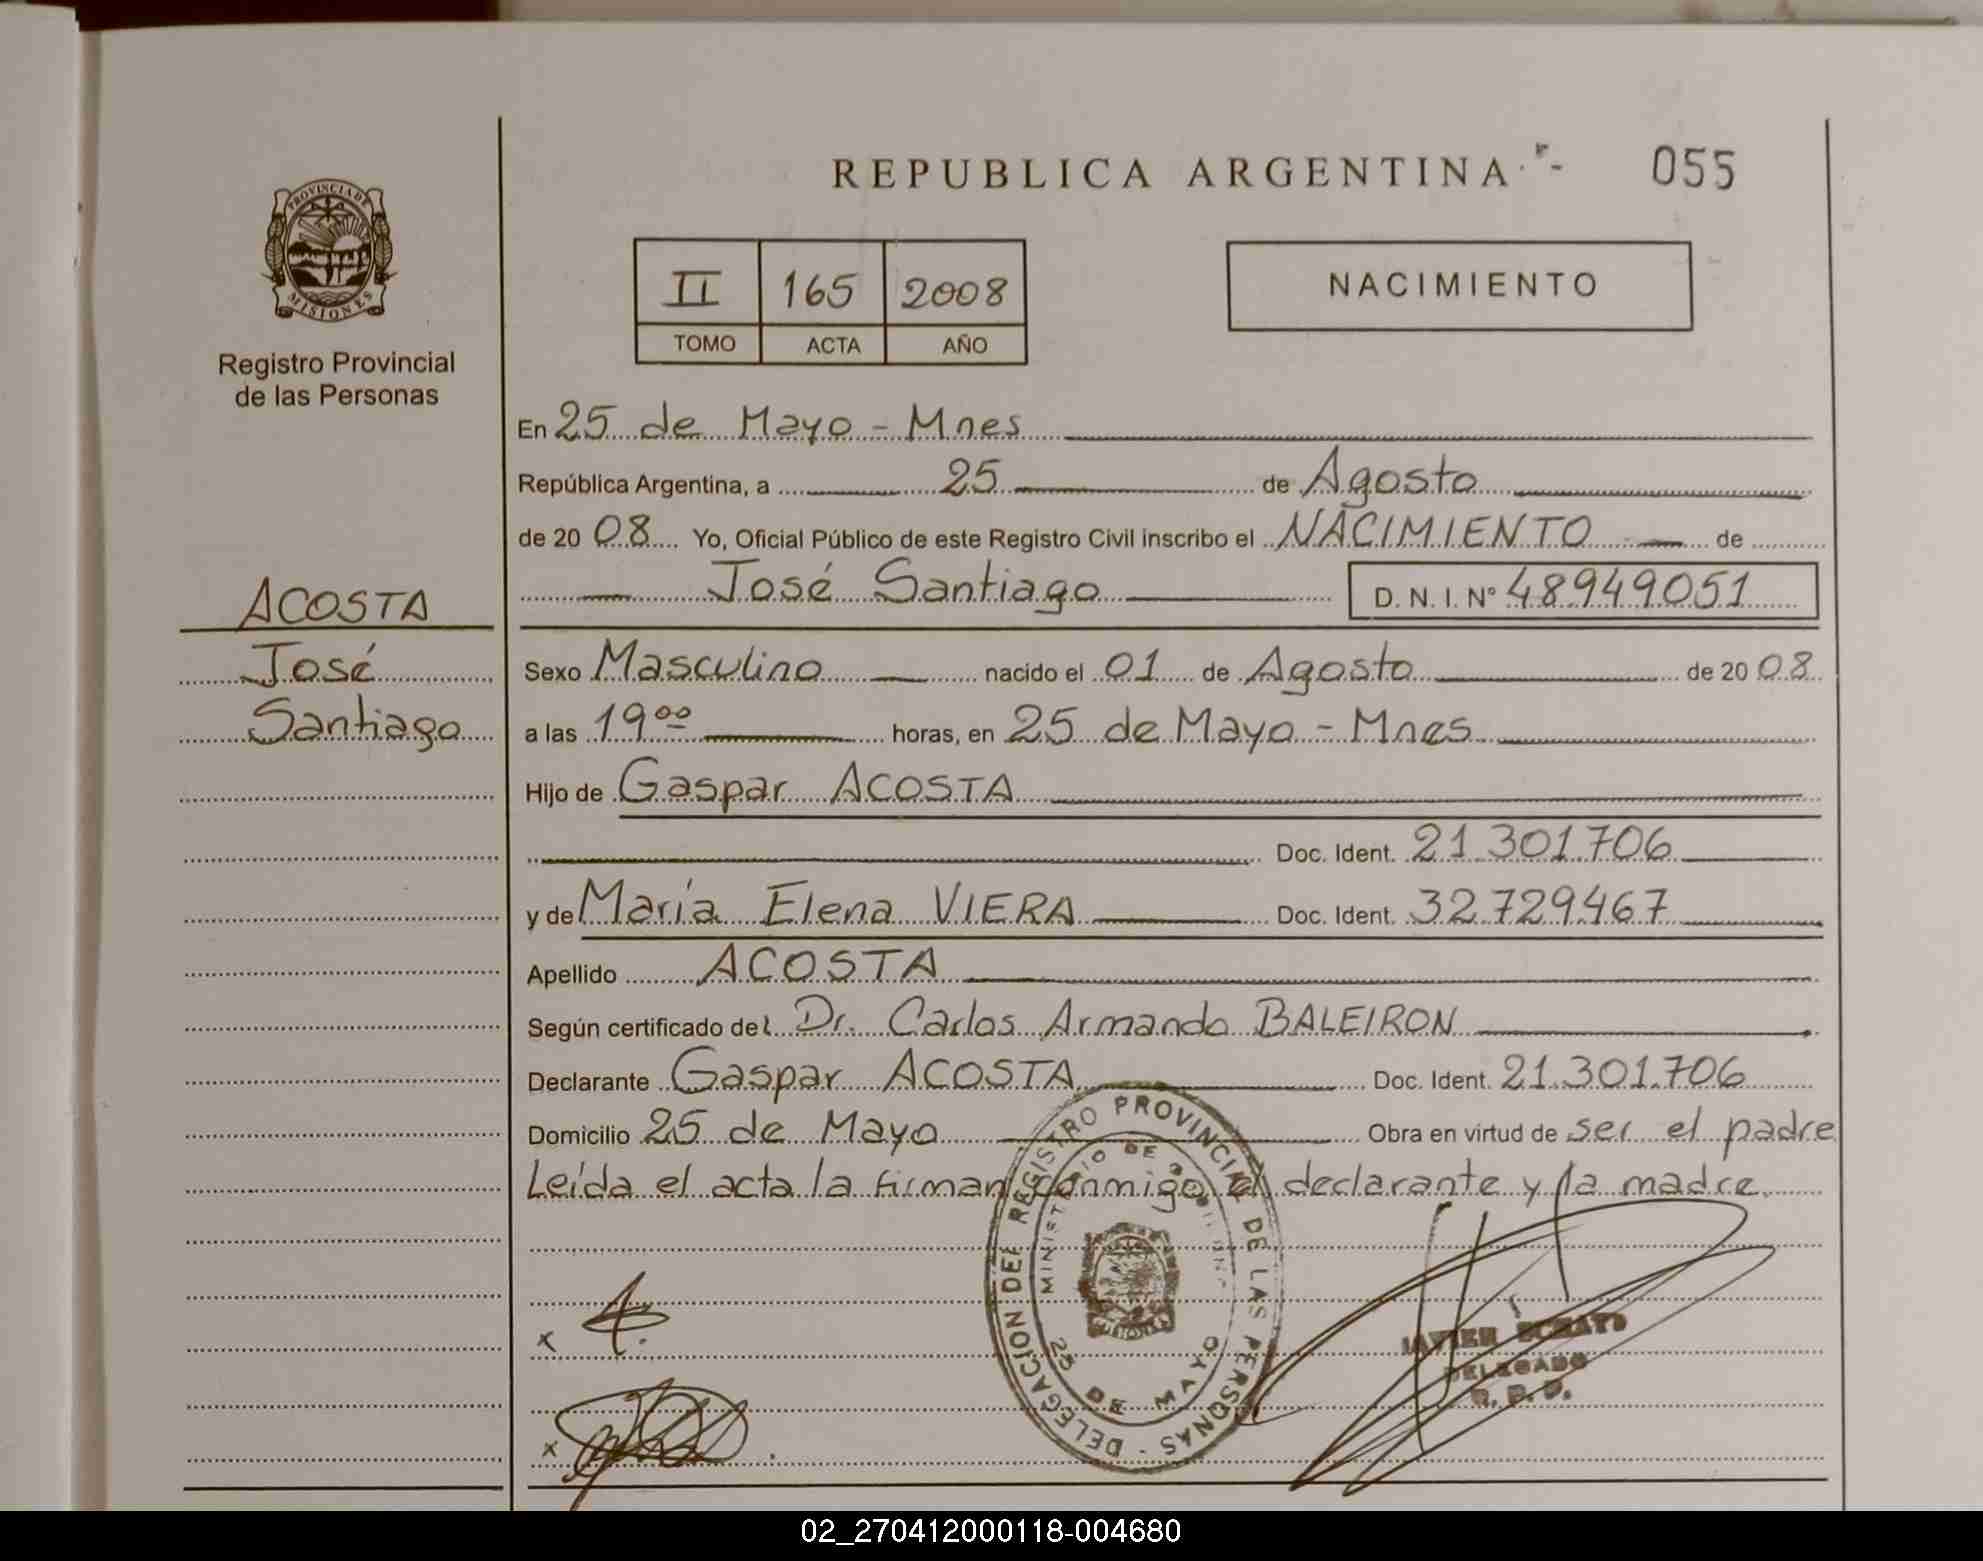 REPUBLICA ARGENTINA 055
PROVINCIA DE
MISIONES
Registro Provincial
de las Personas
II 165 2008
TOMO ACTA AÑO
NACIMIENTO
En 25 de Mayo - Mnes
República Argentina, a 25 de Agosto
de 20 08 Yo, Oficial Público de este Registro Civil inscribo el NACIMIENTO de
José Santiago D. N. I. Nº 48949051
ACOSTA
José
Santiago
Sexo Masculino nacido el 01 de Agosto de 20 08
a las 19 00 horas, en 25 de Mayo - Mnes
Hijo de Gaspar ACOSTA
Doc. Ident. 21.301.706
y de María Elena VIERA Doc. Ident. 32.729.467
Apellido ACOSTA
Según certificado del Dr. Carlos Armando BALEIRON
Declarante Gaspar ACOSTA Doc. Ident. 21.301.706
Domicilio 25 de Mayo Obra en virtud de ser el padre
Leída el acta la firman conmigo el declarante y la madre.
DELEGACION DEL REGISTRO PROVINCIAL DE LAS PERSONAS -
MINISTERIO DE
MISIONES
25 DE MAYO
x
x
JAVIER
DELEGADO
R. P. P.
02_270412000118-004680